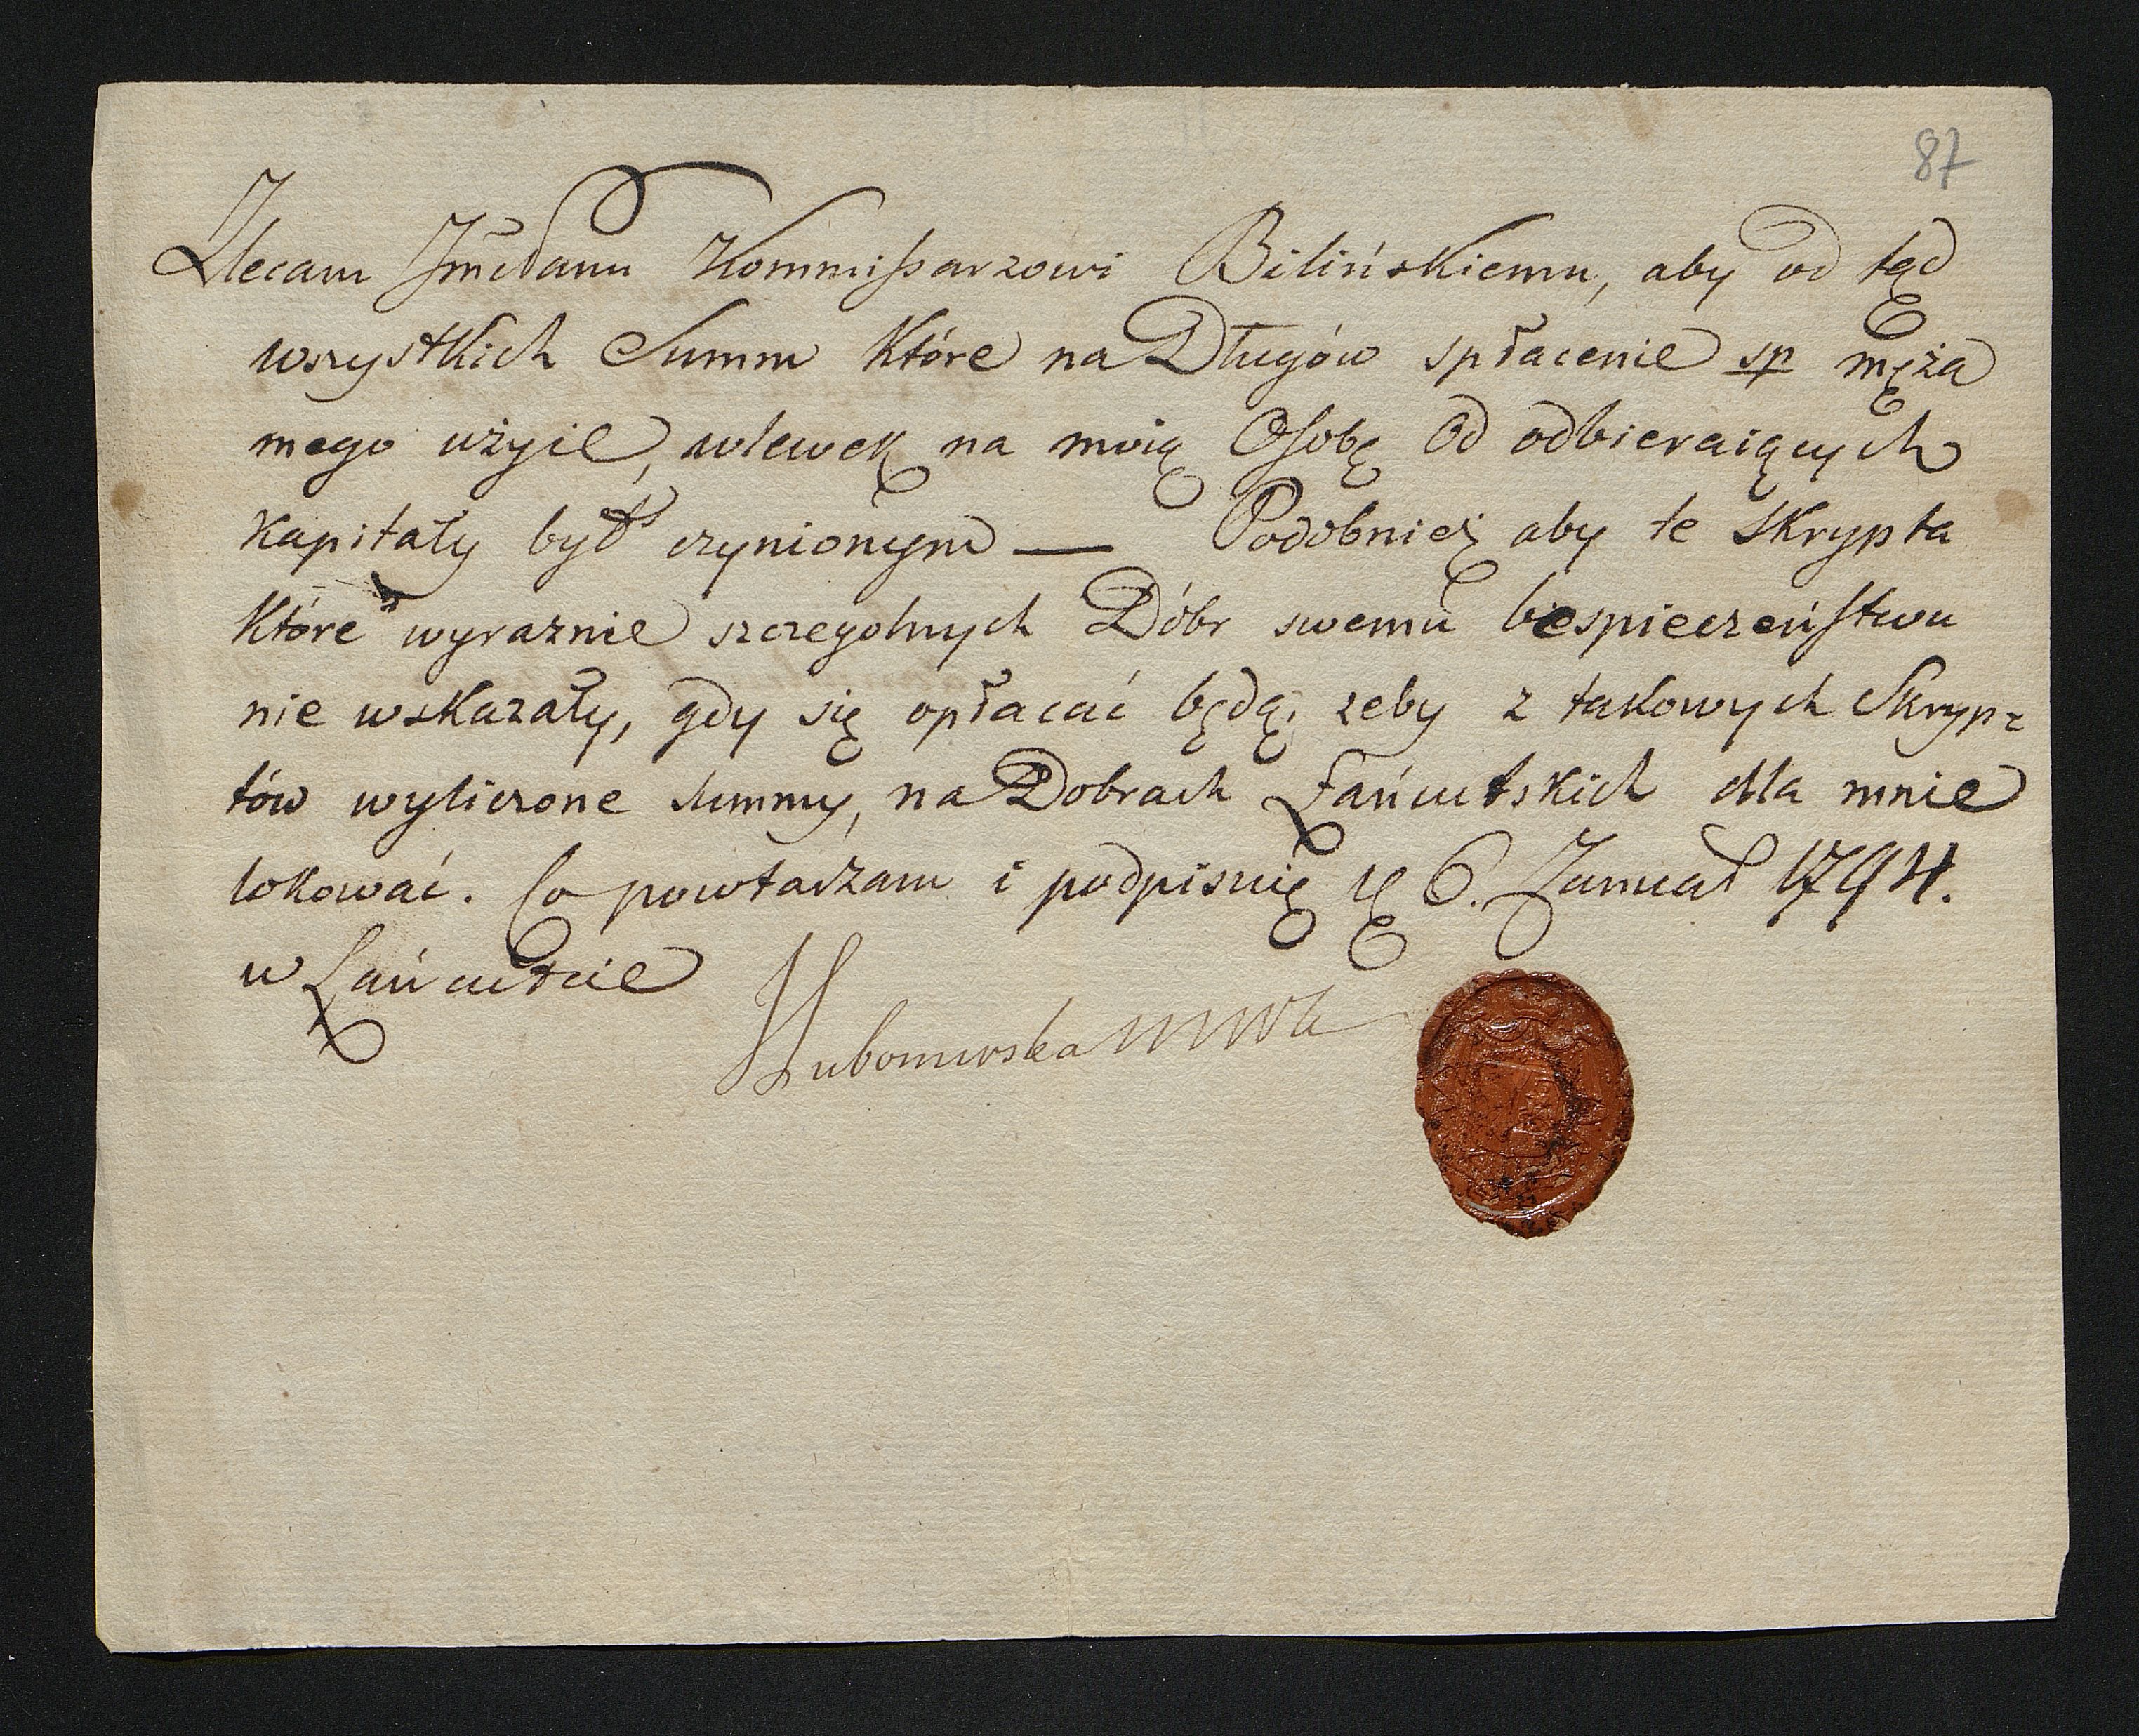 87
Zlecam JmćPanu Kommissarzowi Bilińskiemu, aby od tąd
wszystkich Summ które na Długów spłacenie sp męża
mego użyie, wlewek na moią Osobę od odbieraiących
kapitały był czynionym — Podobnież aby te skrypta
które wyraznie szczegolnych Dóbr swemu bespieczeństwu
nie wskazały, gdy się opłacać będą, zeby z takowych Skryp=
tów wyliczone summy, na Dobrach Łańcutskich dla mnie
lokować. Co powtarzam i podpisuię się 6. Januar 1794.
w Łańcutcie
Lubomirska MWK